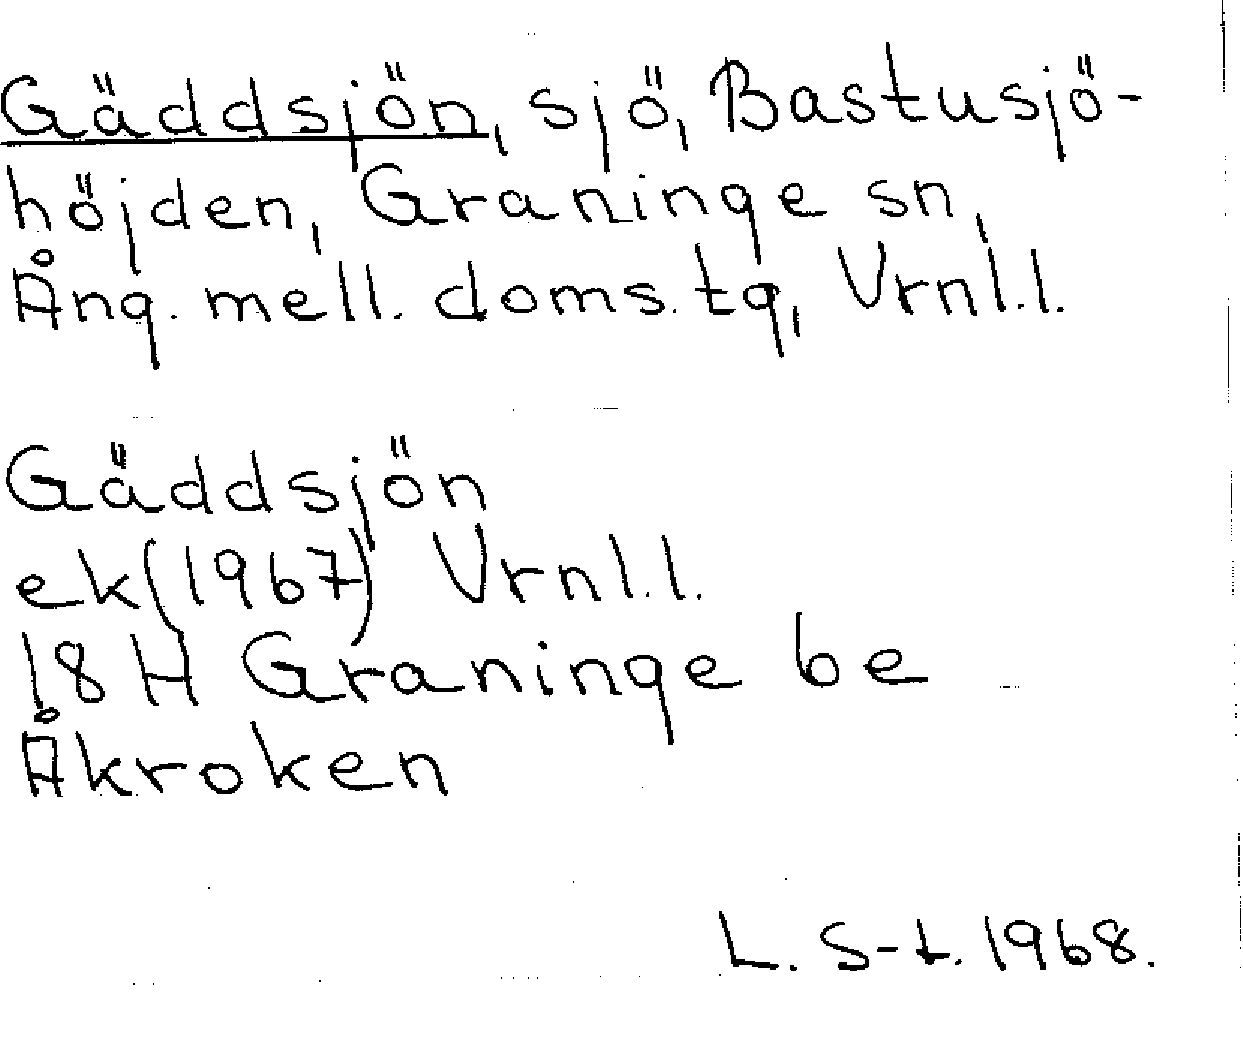 Gäddsjön, sjö, Bastusjö-
höjden, Graninge sn,
Ång. mell. doms. tg, Vrnl.l.
Gäddsjön
ek(1967) Vrnl.l.
18 H Graninge be
Åkroken
L. S-t. 1968.